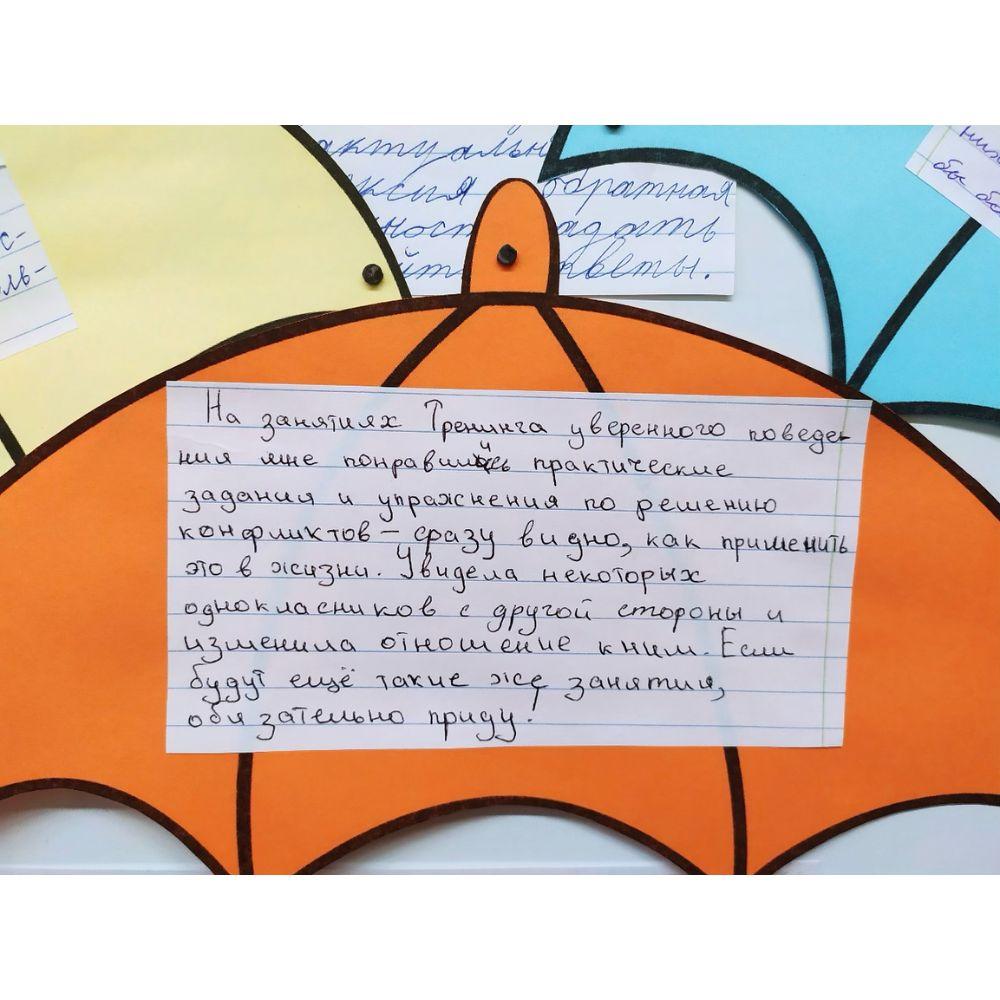 с-
ль-
актуальн
ксия обратная
ност задать
йт тветы.
бы бо
На занятиях Тренинга уверенного поведе-
ния мне понравились практические
задания и упражнения по решению
конфликтов – сразу видно, как применить
это в жизни. Увидела некоторых
однокласников с другой стороны и
изменила отношение к ним. Если
будут ещё такие же занятия,
обязательно приду!